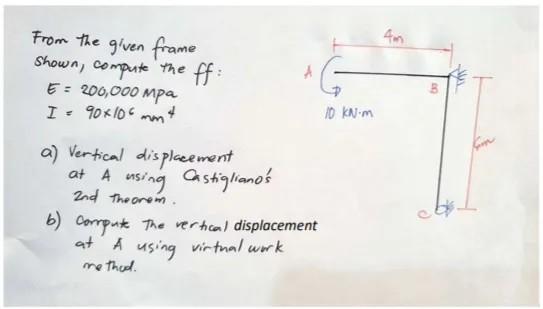 From the given frame
shown, compute the ff:
E = 200,000 MPa
I = 90x10⁶ mm⁴
a) Vertical displacement
at A using Castigliano's
2nd Theorem.
b) Compute the vertical displacement
at A using virtual work
method.
4m
A
B
10 KN·m
6m
C